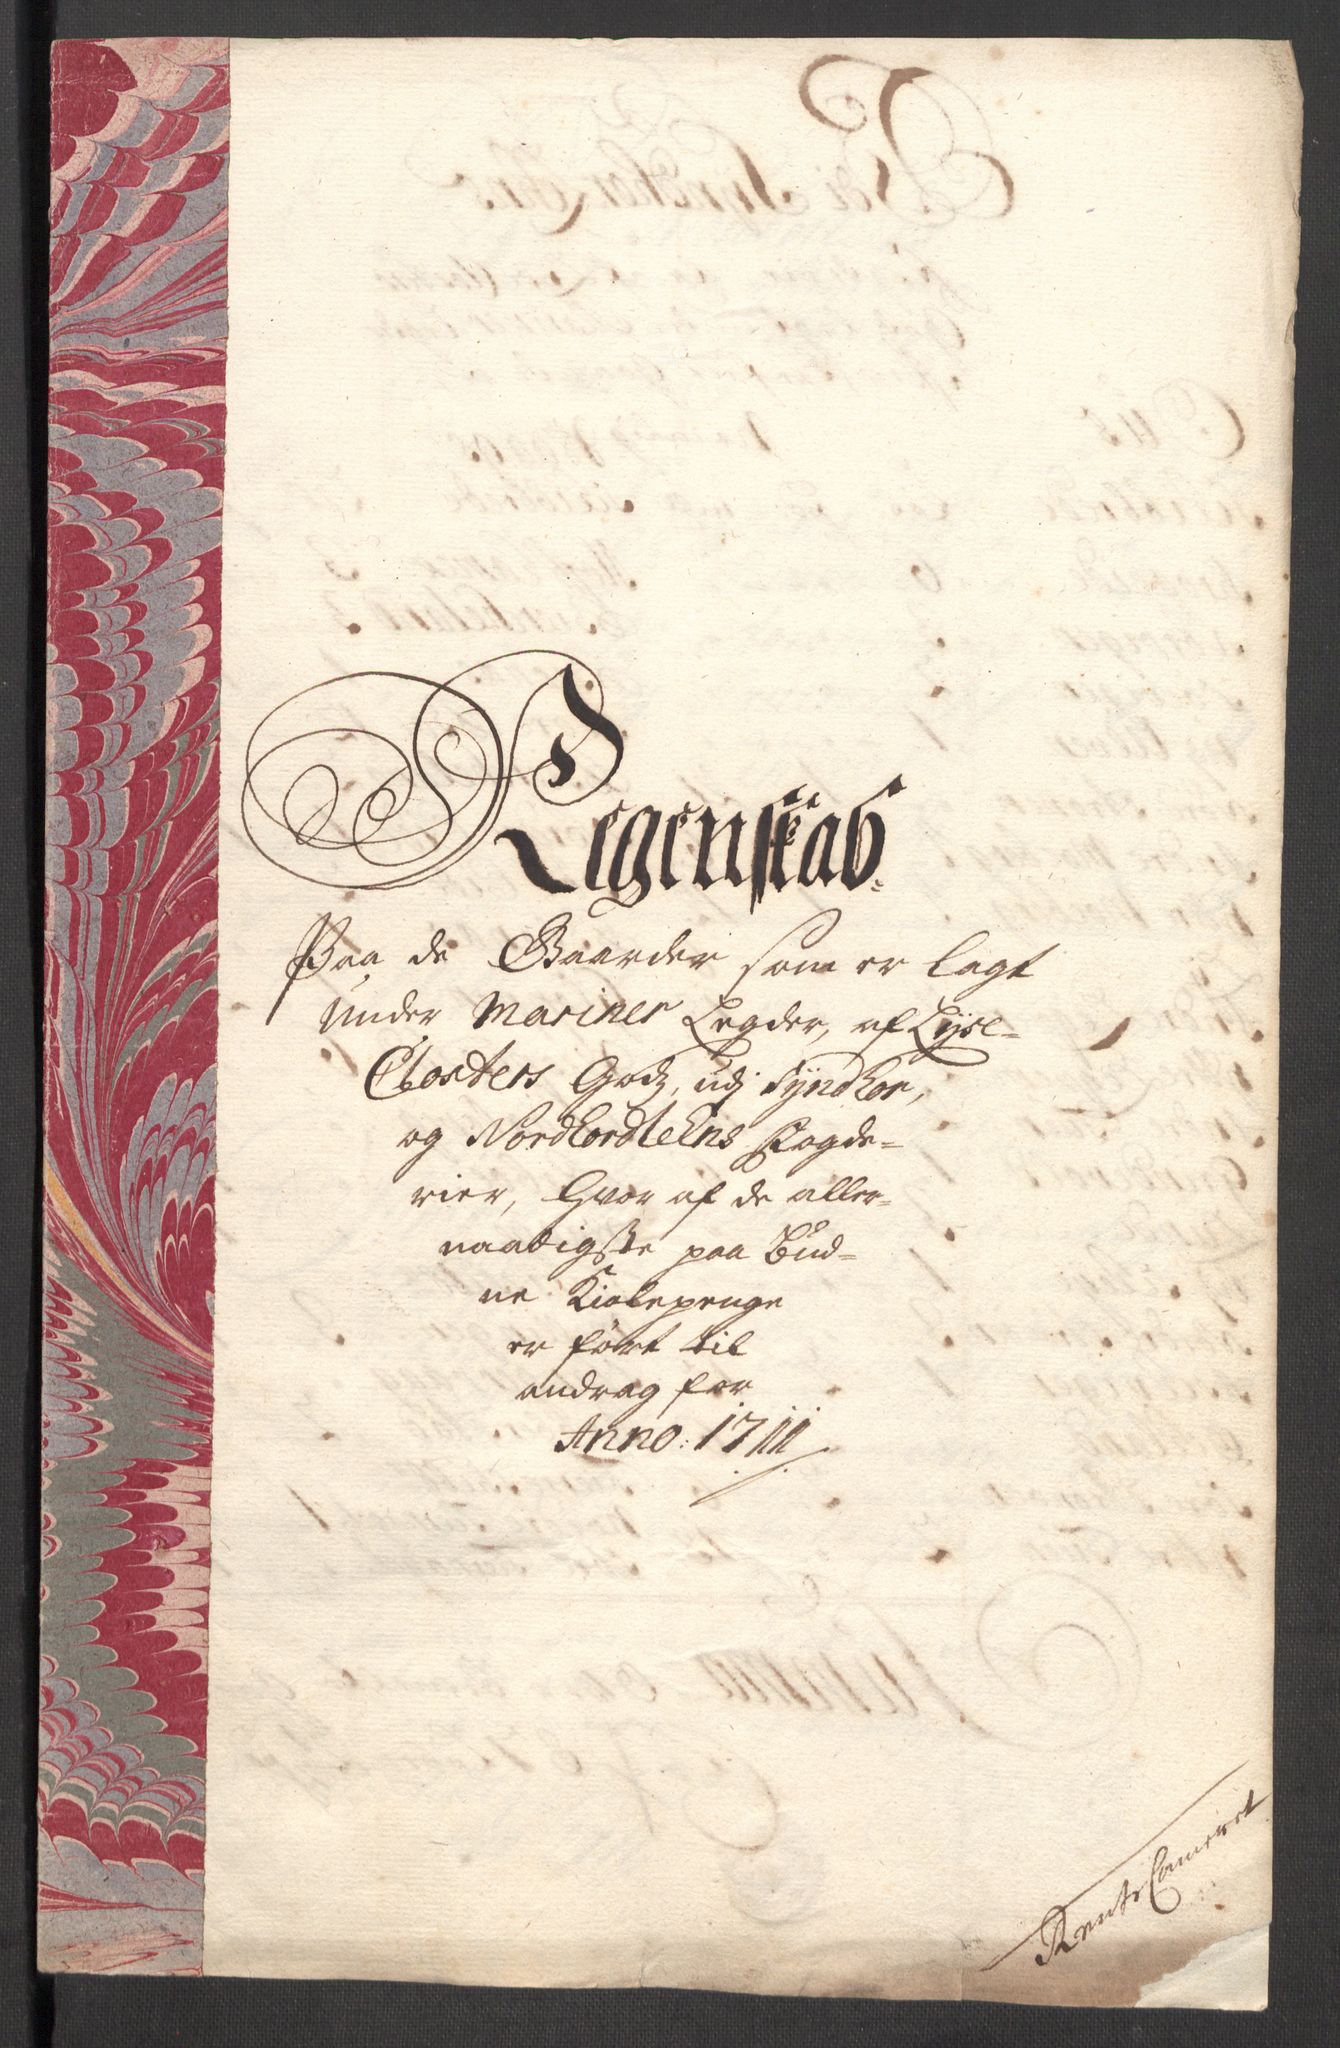 Regenskab
Paa de Gaarder som er lagt
Under Mariner Legder, af Lyse-
Closters Godz, udj Syndhor,
og Nordhordlehns Fogde-
rier, hvor af de aller-
naadigste paa Bud-
ne Kiolepenge
er ført til
andrag for
Anno: 1711
Rente Cammeret